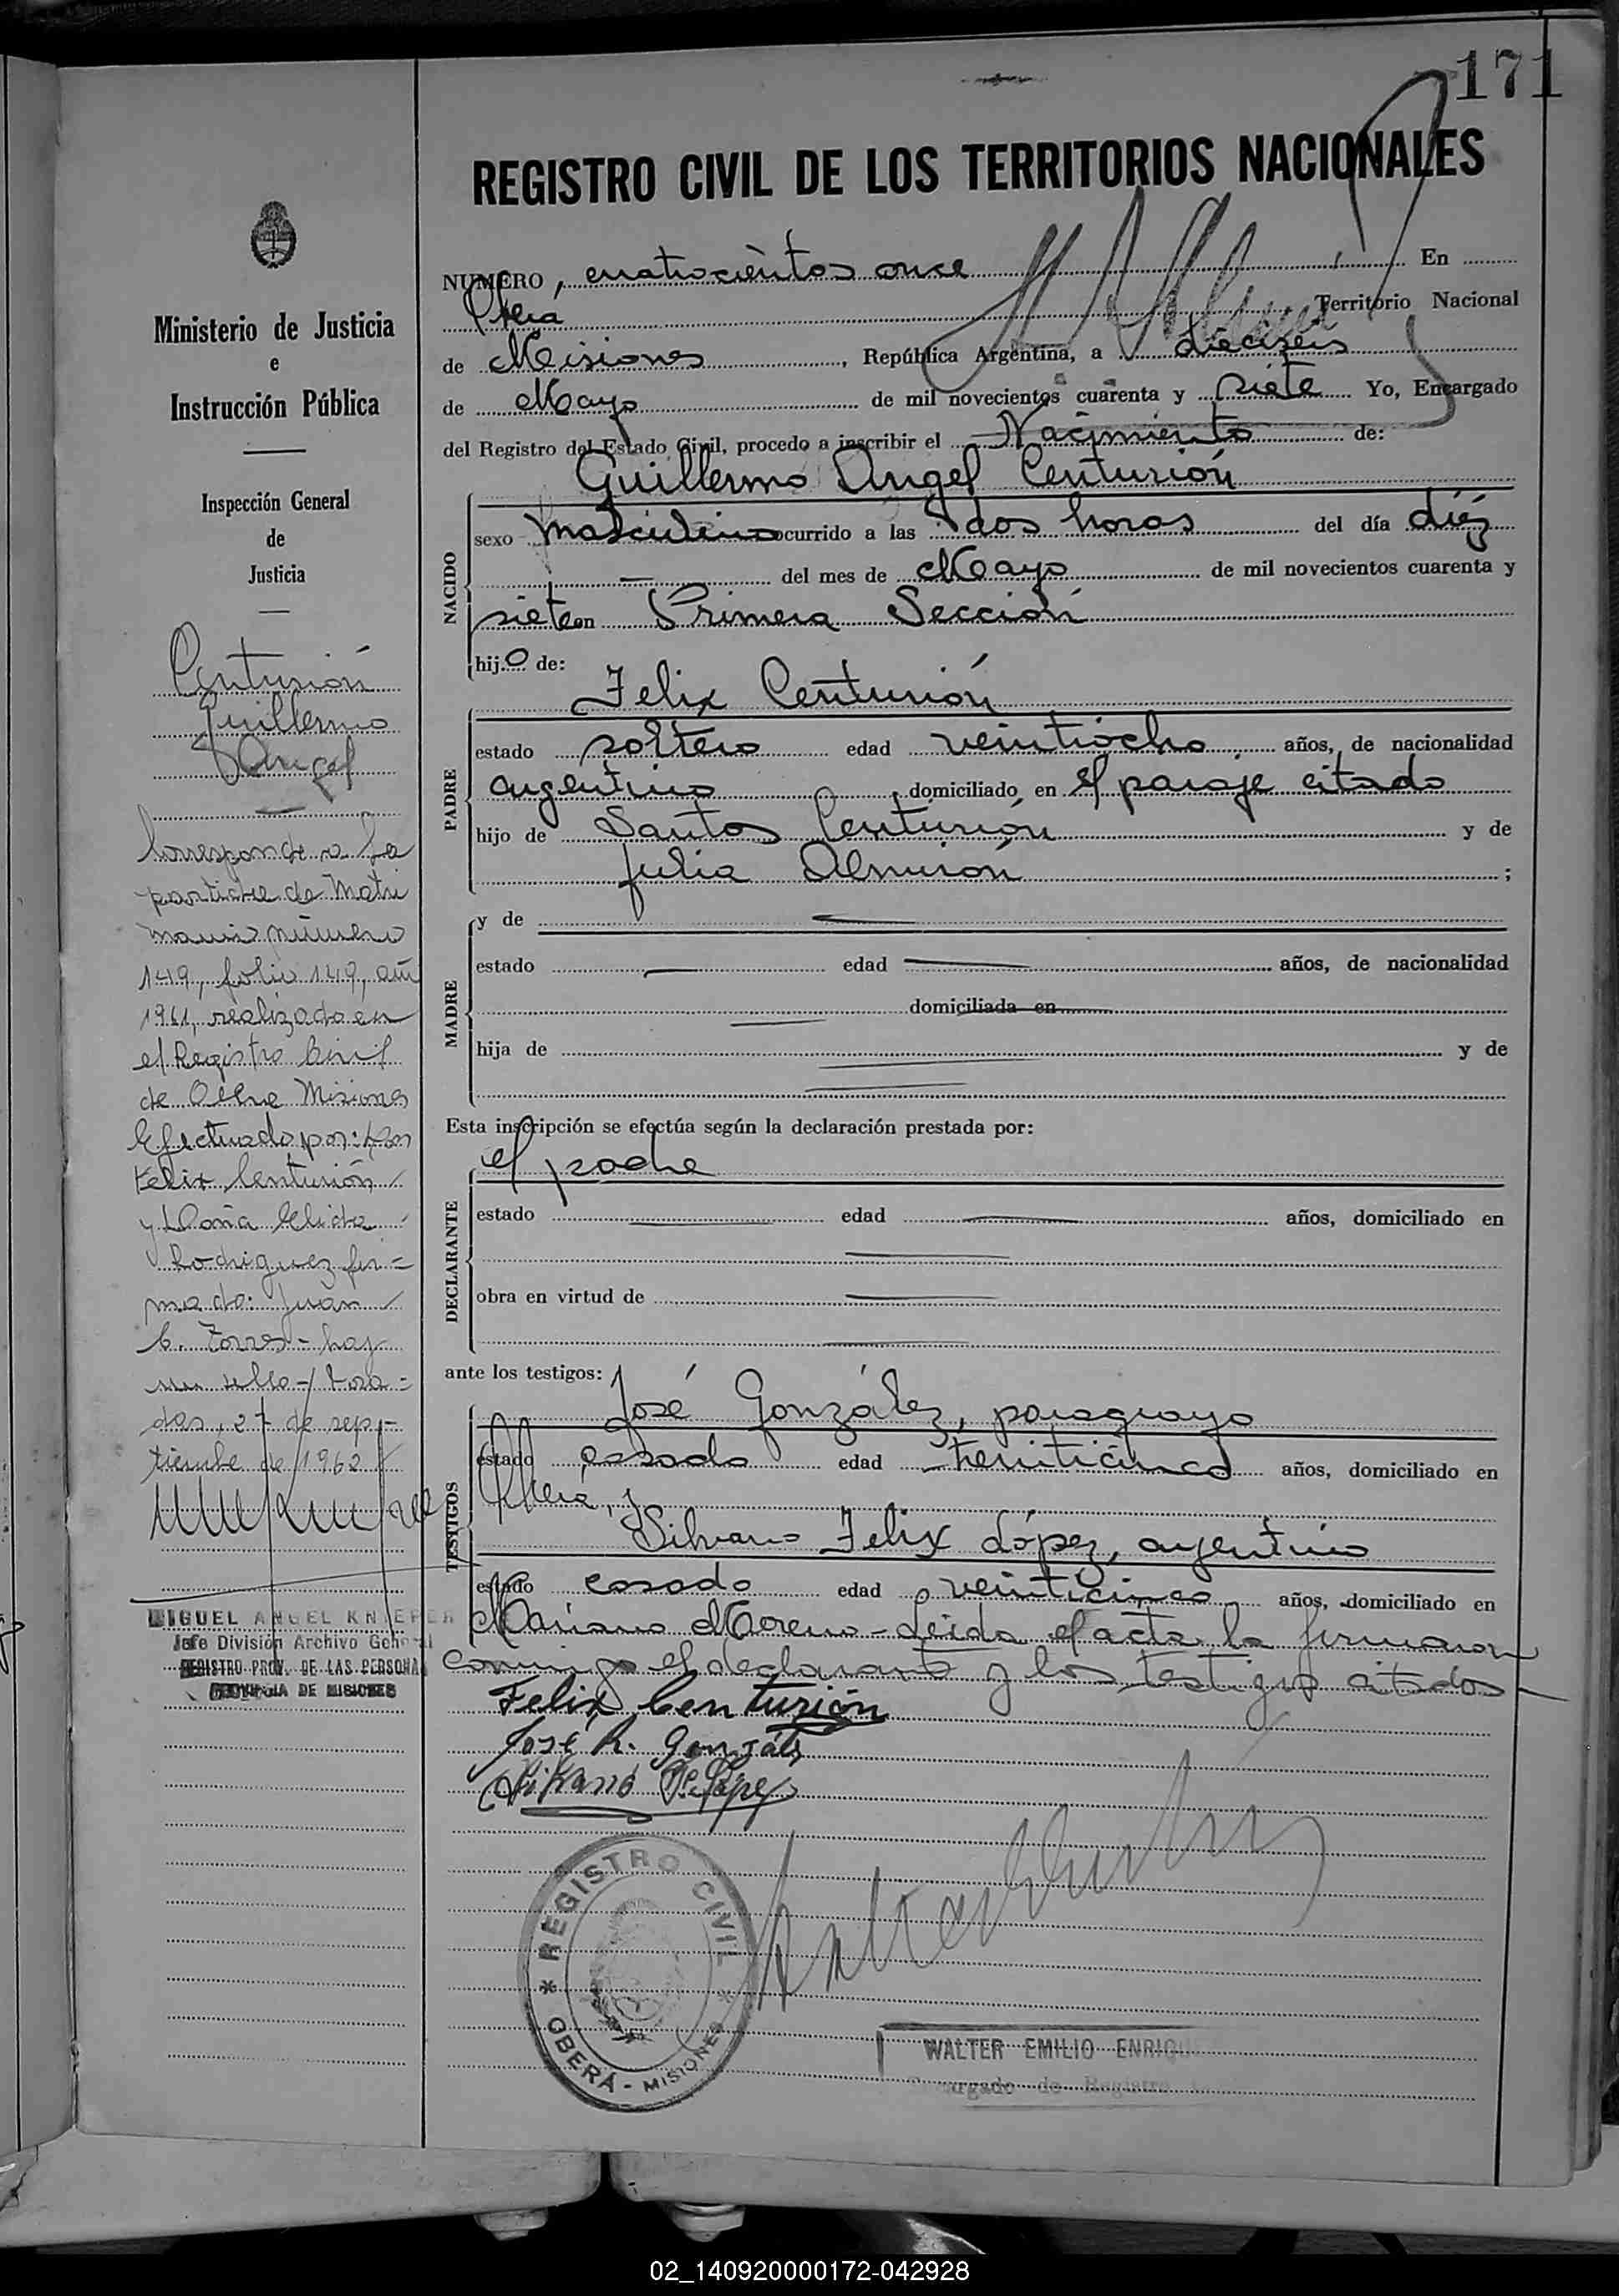 171
REGISTRO CIVIL DE LOS TERRITORIOS NACIONALES
NUMERO, cuatrocientos once En
Oberá Territorio Nacional
de Misiones, República Argentina, a dieciseis
de Mayo de mil novecientos cuarenta y siete Yo, Encargado
del Registro del Estado Civil, procedo a inscribir el Nacimiento de:
Guillermo Angel Centurión
NACIDO
sexo masculino ocurrido a las dos horas del día diéz
del mes de Mayo de mil novecientos cuarenta y
siete en Primera Sección
hijo de:
Felix Centurión
PADRE
estado soltero edad veintiocho años, de nacionalidad
argentino, domiciliado en el paraje citado
hijo de Santos Centurión y de
Julia Almirón;
MADRE
y de
estado edad años, de nacionalidad
domiciliada en
hija de y de
Esta inscripción se efectúa según la declaración prestada por:
el padre
DECLARANTE
estado edad años, domiciliado en
obra en virtud de
ante los testigos:
José González, paraguayo
TESTIGOS
estado casado edad treinticinco años, domiciliado en
Oberá, y
Silvano Felix López, argentino
estado casado edad veinticinco años, domiciliado en
Mariano Moreno - Leida el acta la firmaron
conmigo el declarante y los testigos citados
Felix Centurión
José R. Gonzáls
Silvano F. López
REGISTRO CIVIL
OBERÁ - MISIONES
WALTER EMILIO ENRIQU
Encargado de Registro
Ministerio de Justicia
e
Instrucción Pública
Inspección General
de
Justicia
Centurión
Guillermo
Angel
Corresponde a la
partida de Matri
monio número
149, folio 149, año
1961, realizada en
el Registro Civil
de Obera Misiones
Efectuado por: Don
Felix Centurión
y Doña Elida
Rodriguez fir=
mado: Juan
C. Torres - hay
un sello - Posa=
das, 27 de sep-
tiembre de 1962
MIGUEL ANGEL KNIEPER
Jefe División Archivo General
REGISTRO PROV. DE LAS PERSONAS
PROVINCIA DE MISIONES
02_140920000172-042928